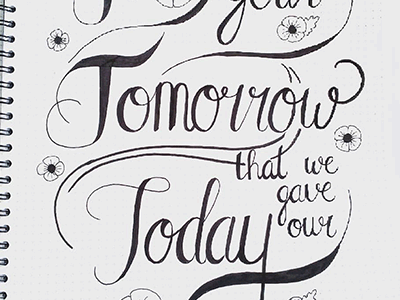 your
Tomorrow
that we
gave
Today our